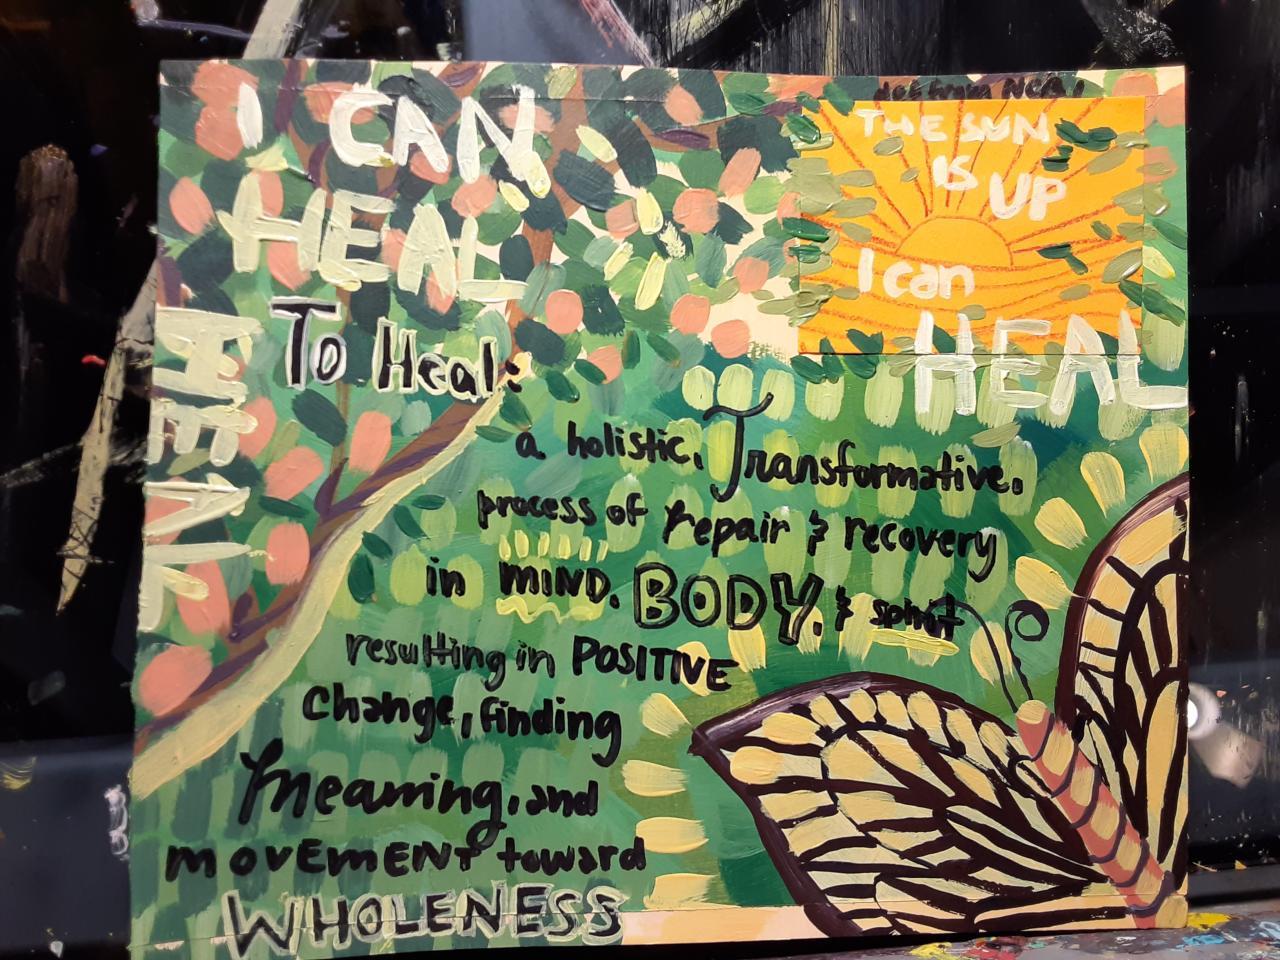 I CAN
HEAL
HEAL
To Heal:
a holistic, Transformative,
process of repair & recovery
in MIND, BODY, & spirit
resulting in POSITIVE
change, finding
meaning, and
movement toward
WHOLENESS
THE SUN
IS UP
I can
HEAL